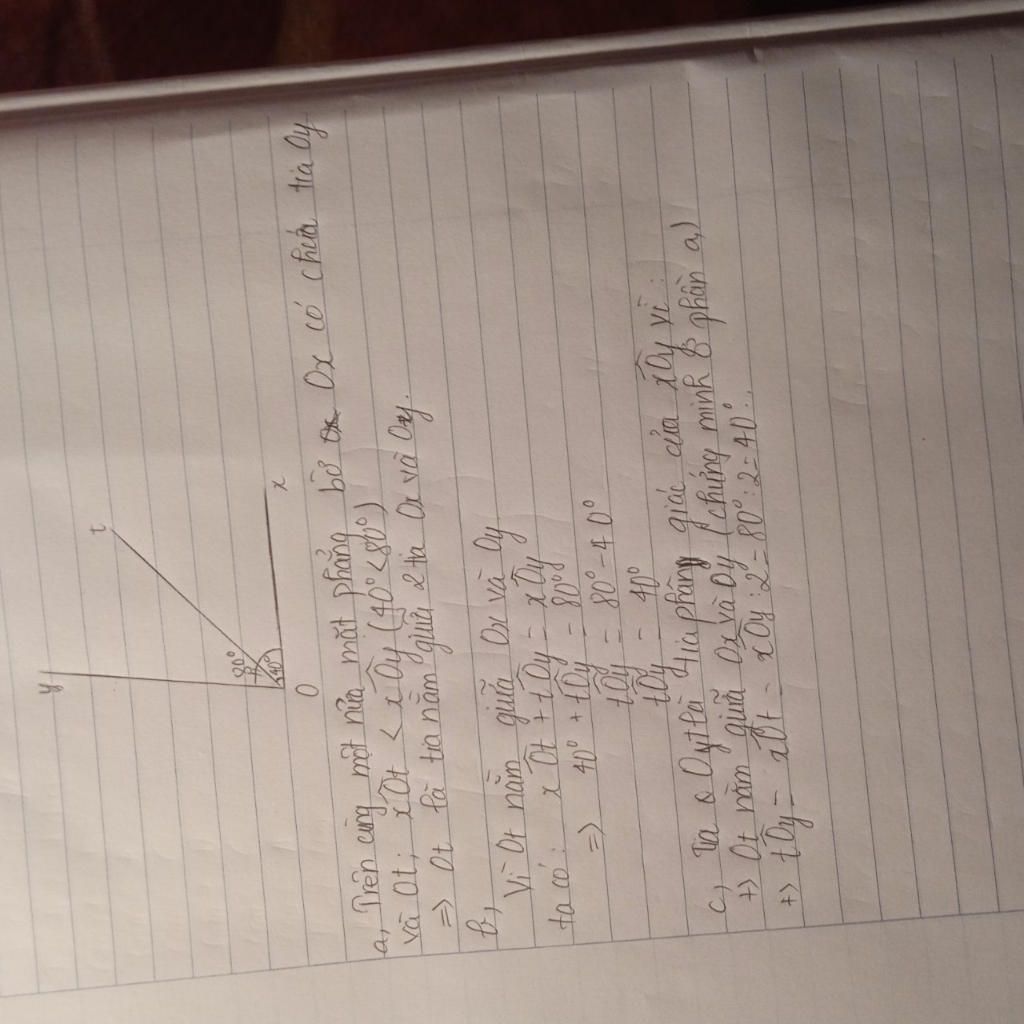 y
t
80°
40°
O
x
a, Trên cùng một nửa mặt phẳng bờ Ox có chứa tia Oy
và Ot; xÔt < xÔy (40° < 80°)
=> Ot là tia nằm giữa 2 tia Ox và Oy.
b,
Vì Ot nằm giữa Ox và Oy
ta có: xÔt + tÔy = xÔy
=> 40° + tÔy = 80°
tÔy = 80° - 40°
tÔy = 40°
c, Tia Oy là tia phân giác của xÔy vì:
+> Ot nằm giữa Ox và Oy (chứng minh ở phần a)
+> tÔy = xÔt = xÔy : 2 = 80° : 2 = 40°.